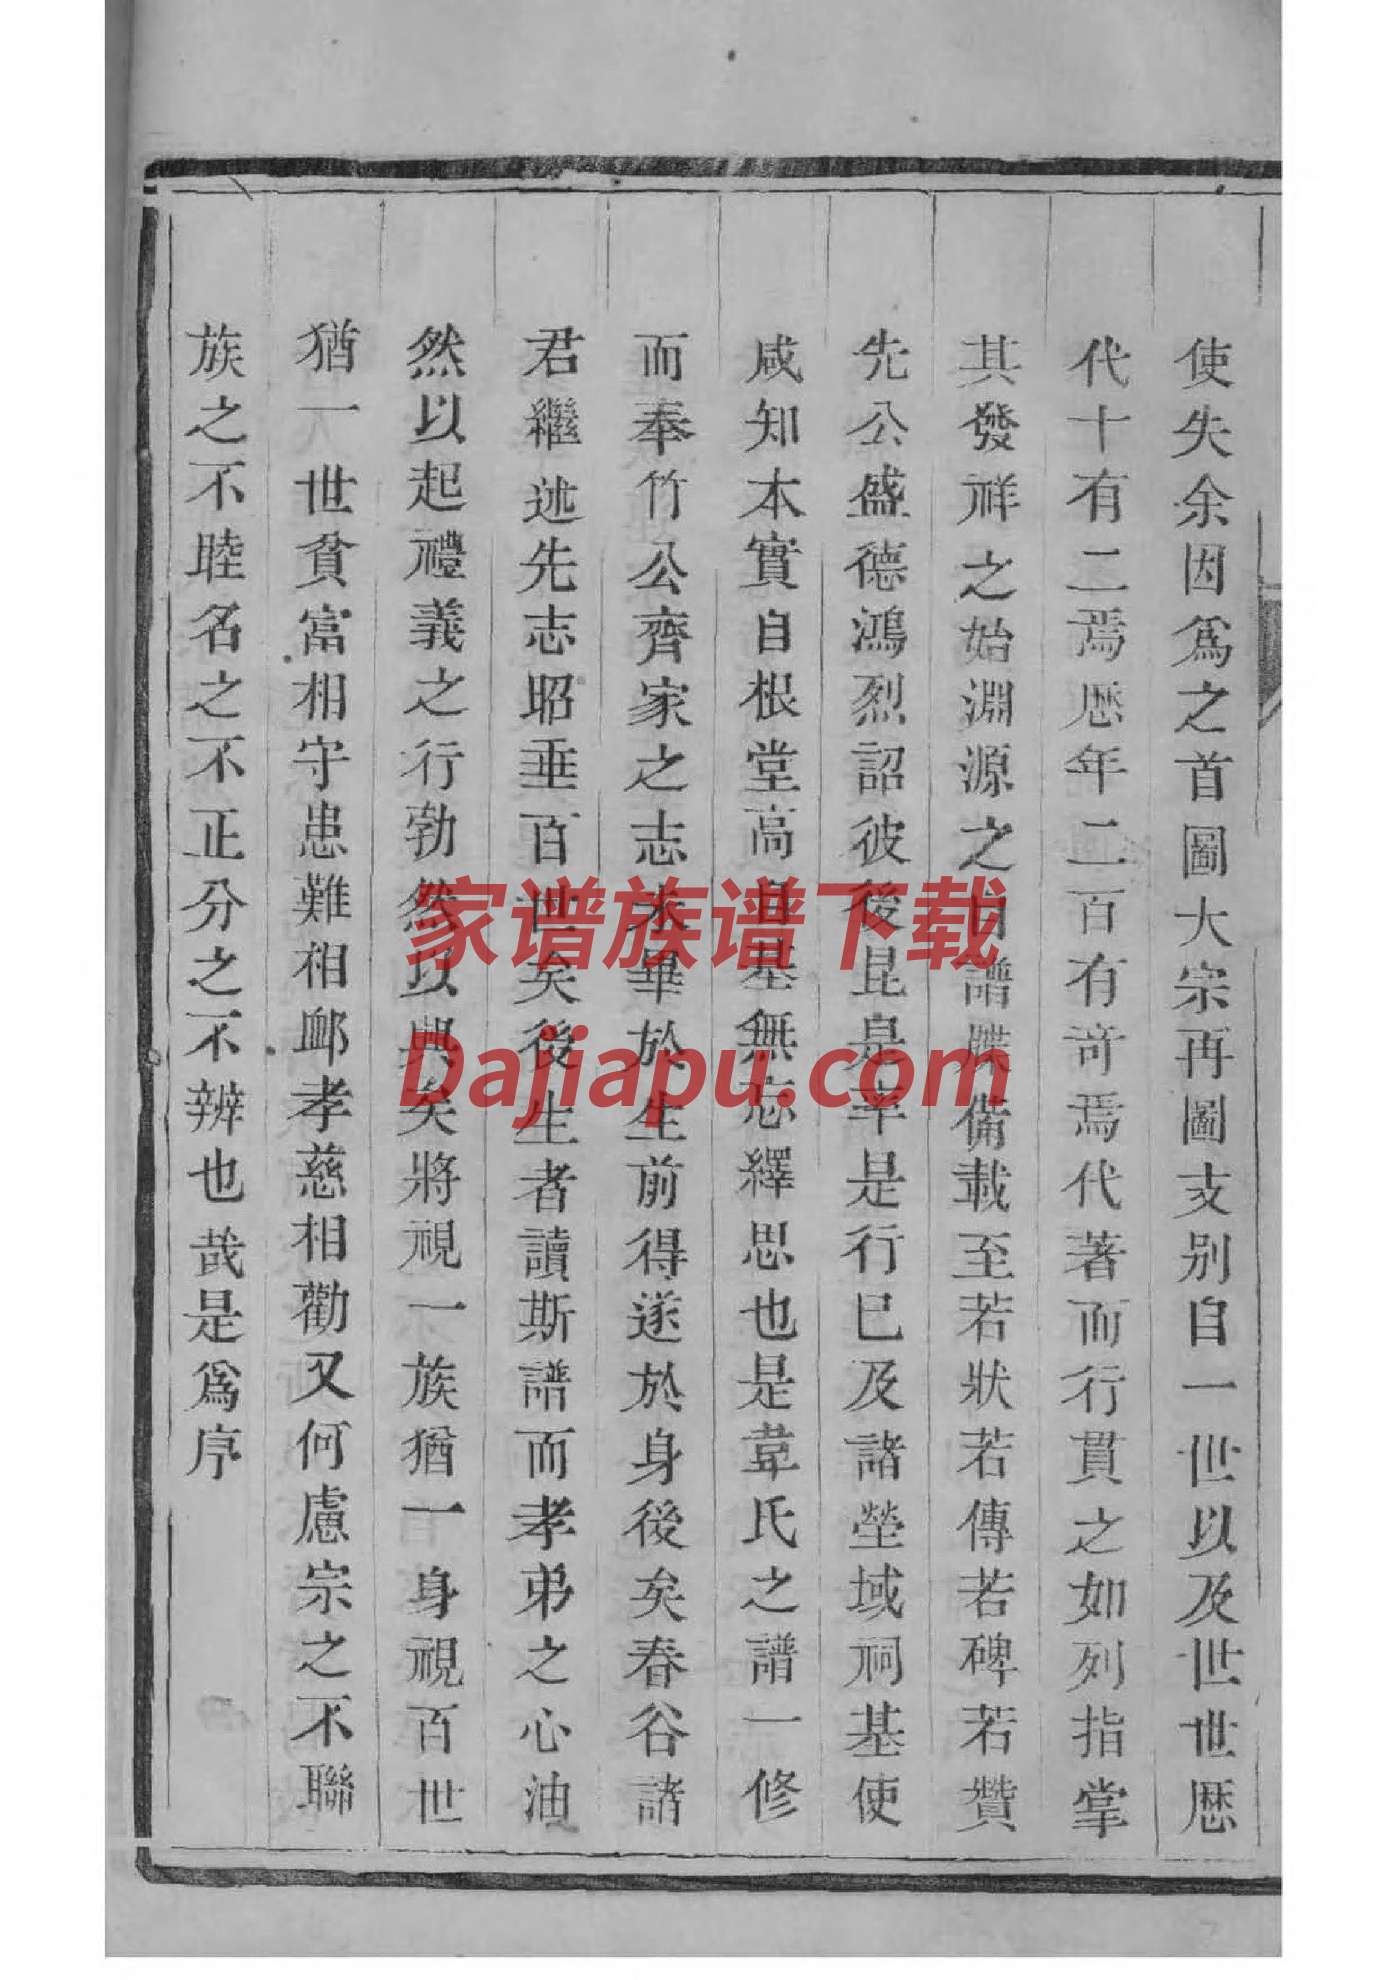 使失余因爲之首圖大宗再圖支别自一世以及世世歷
代十有二焉歷年二百有竒焉代著而行貫之如列指掌
其發祥之始淵源之自譜牒備載至若狀若傳若碑若贊
先公盛德鴻烈詔彼後昆是率是行巳及諸塋域祠基使
咸知本實自根堂高自基無忘繹思也是韋氏之譜一修
而奉竹公齊家之志未畢於生前得遂於身後矣春谷諸
君繼述先志昭垂百世矣後生者讀斯譜而孝弟之心油
然以起禮義之行勃然以興矣將視一族猶一身視百世
猶一世貧富相守患難相䘏孝慈相勸又何慮宗之不聯
族之不睦名之不正分之不辨也哉是爲序
家谱族谱下载
Dajiapu.com